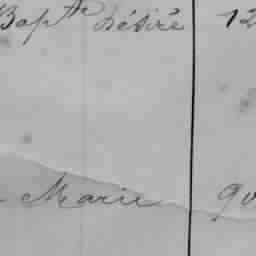 Bapt.te Désiré 12
Marie 90